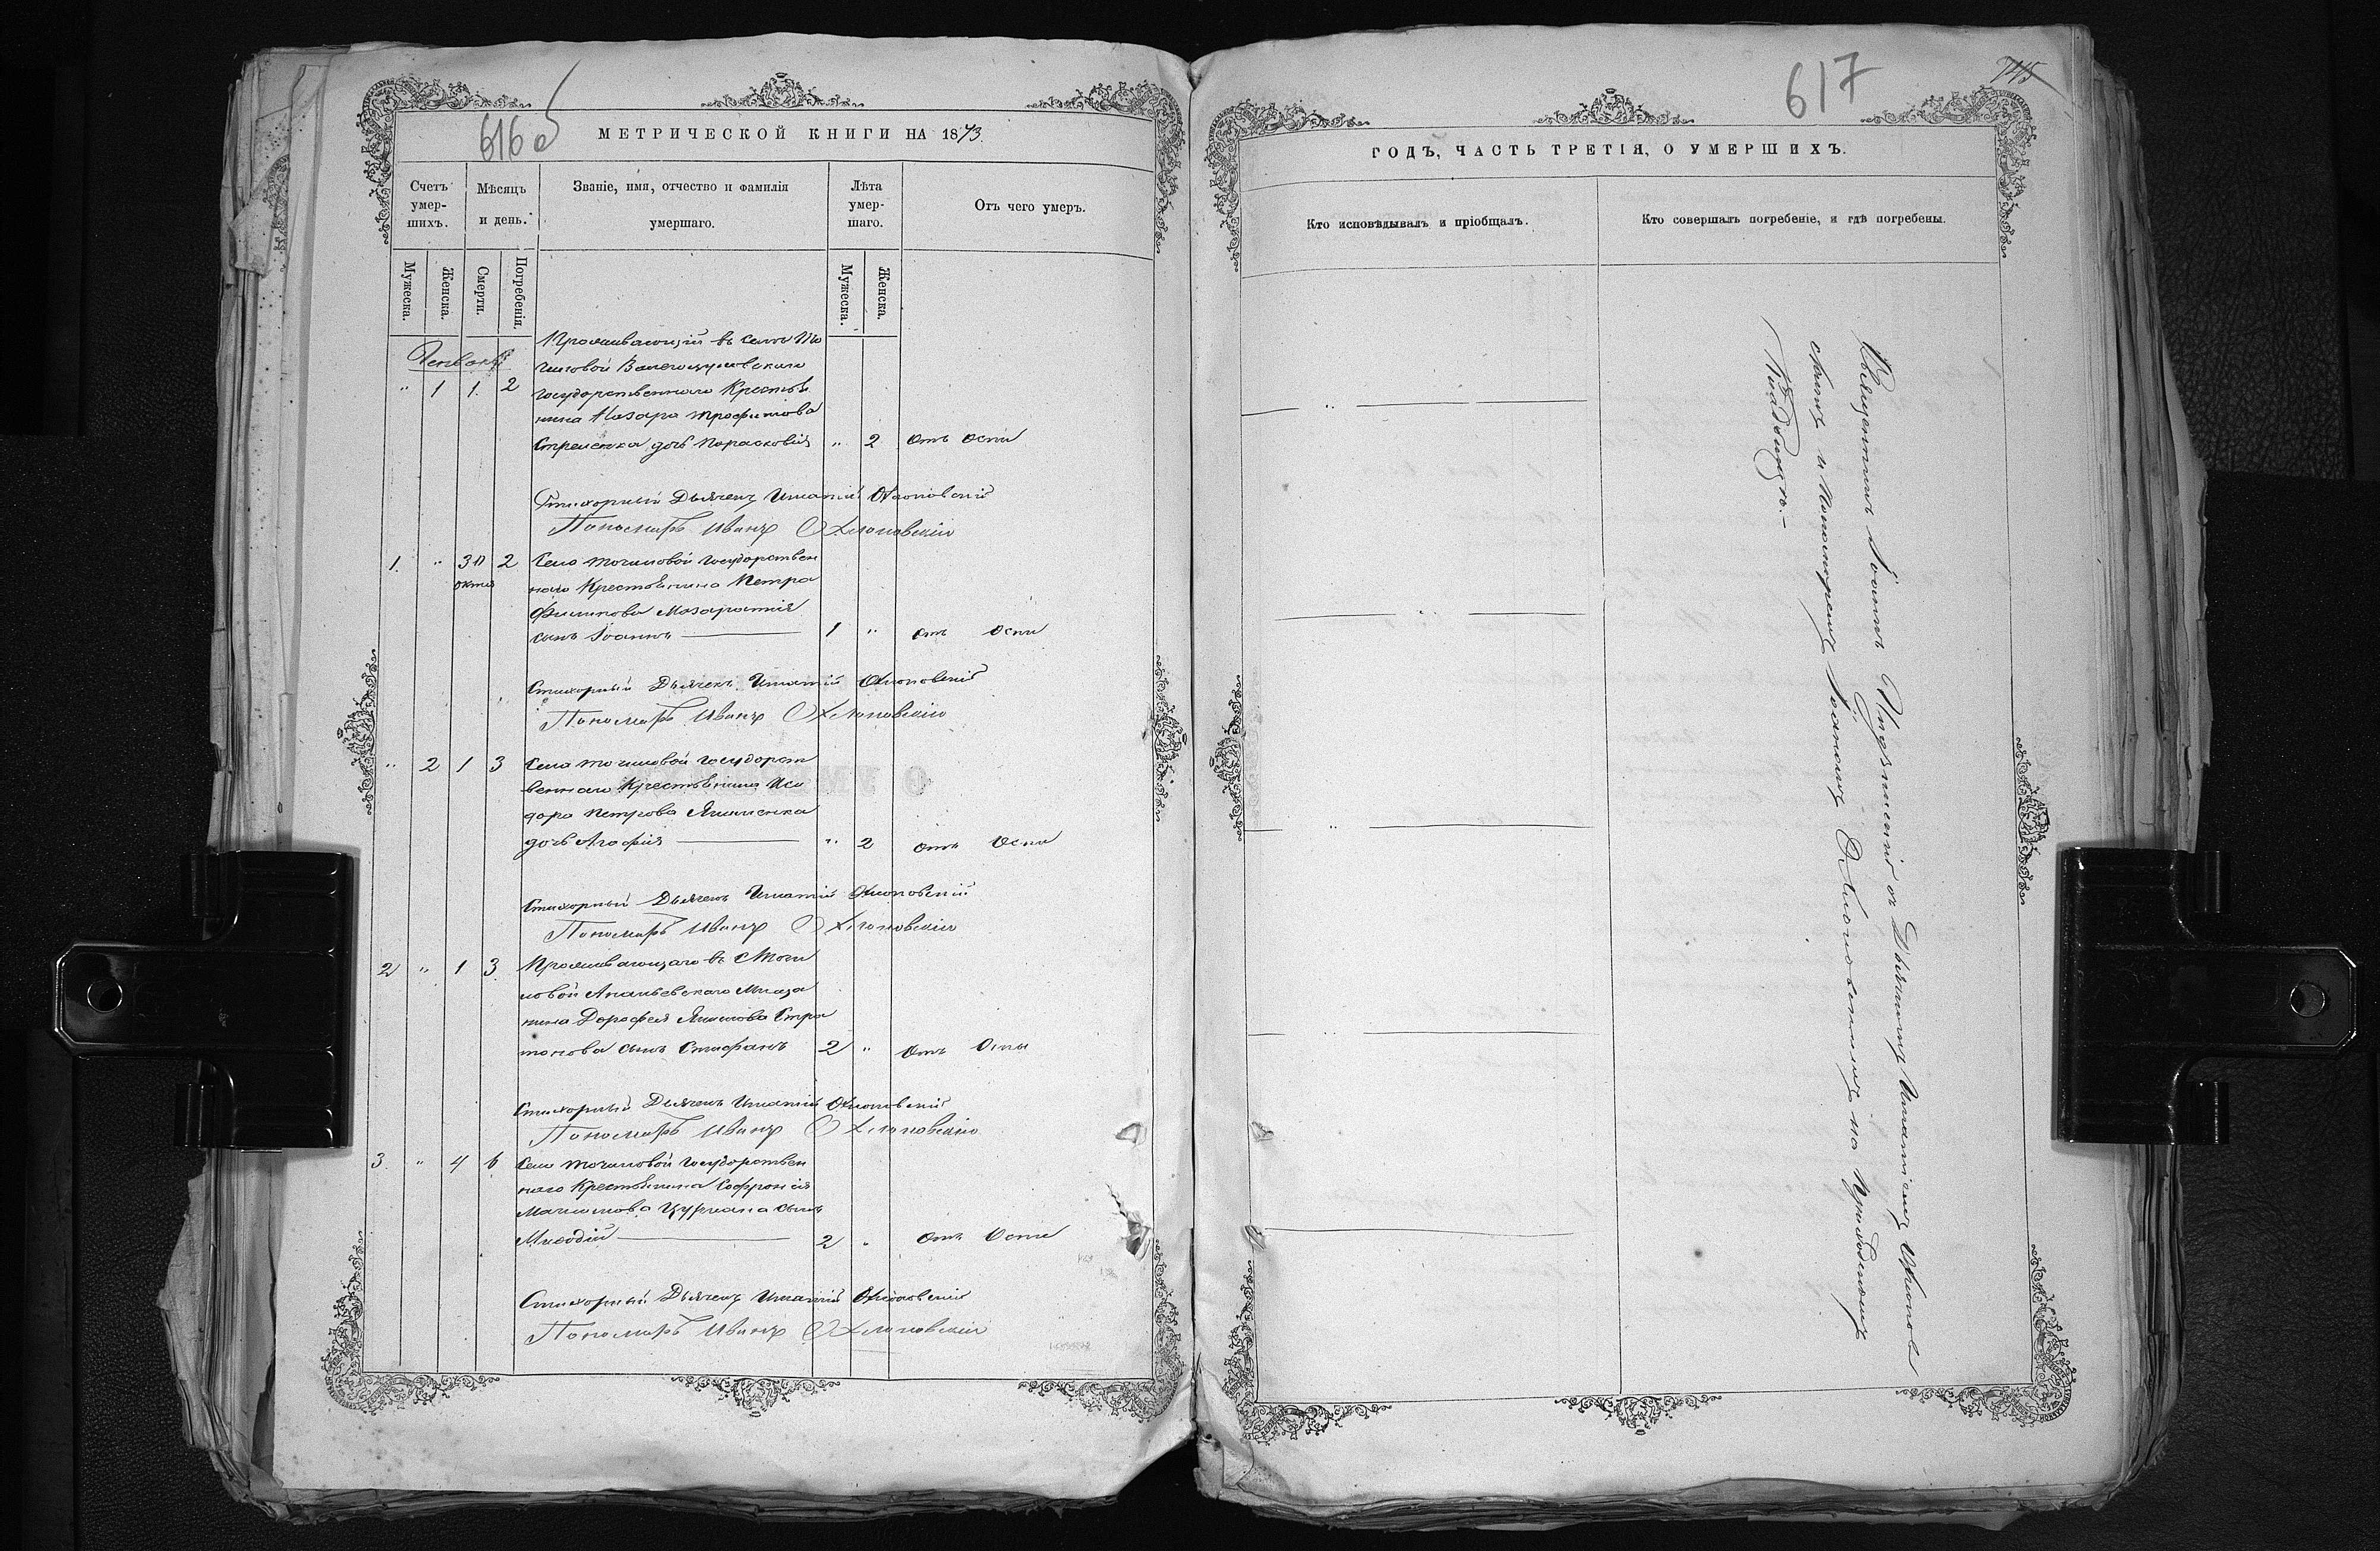 616 об
МЕТРИЧЕСКОЙ КНИГИ НА 1873.
Счетъ умер-шихъ.
Мѣсяцъ и день.
Званіе, имя, отчество и фамилія умершаго.
Лѣта умер-шаго.
Отъ чего умеръ.
Мужеска.
Женска.
Смерти.
Погребенія.
Мужеска.
Женска.
Январь
Проживающій въ селѣ То
чиловой
" 1 1. 2 государственнаго Крестья
нина Назара Трофимова
дочь Парасковія " 2 отъ оспи
Стихорный Дьячекъ Игнатій Хлоповскій
Пономарь Иванъ Хлоповскій
1. " 30 2 Села Точиловой государствен
октяб
наго Крестьянина Петра
Филипова
сынъ Іоаннъ 1 " отъ оспи
Стихорный Дьячекъ Игнатій Хлоповскій
Пономарь Иванъ Хлоповскій
" 2 1 3 Села Точиловой государст
веннаго Крестьянина Иси
дора Петрова
дочь Агафія " 2 отъ оспи
Стихорный Дьячекъ Игнатій Хлоповскій
Пономарь Иванъ Хлоповскій
2 " 1 3. Проживающаго въ с Точи
ловой Ананьевскаго Мѣща
нина Дорофея Якимова Стра
тонова сынъ Стефанъ 2 " отъ оспы
Стихорный Дьячекъ Игнатій Хлоповскій
Пономарь Иванъ Хлоповскій
3. " 4 6 Села Точиловой государствен
наго Крестьянина Софронія
Максимова Цуркана сынъ
Мефодій 2 " отъ оспи
Стихорный Дьячекъ Игнатій Хлоповскій
Пономарь Иванъ Хлоповскій
617
745
ГОДЪ, ЧАСТЬ ТРЕТІЯ, О УМЕРШИХЪ.
Кто исповѣдывалъ и пріобщалъ.
Кто совершалъ погребеніе, и гдѣ погребены.
"
"
"
"
Священникъ Іоаннъ съ Дьячкомъ Игнатіемъ Хлопов
скимъ и Пономаремъ Іоанномъ Хлоповскимъ на приходскомъ
Кладбищѣ.